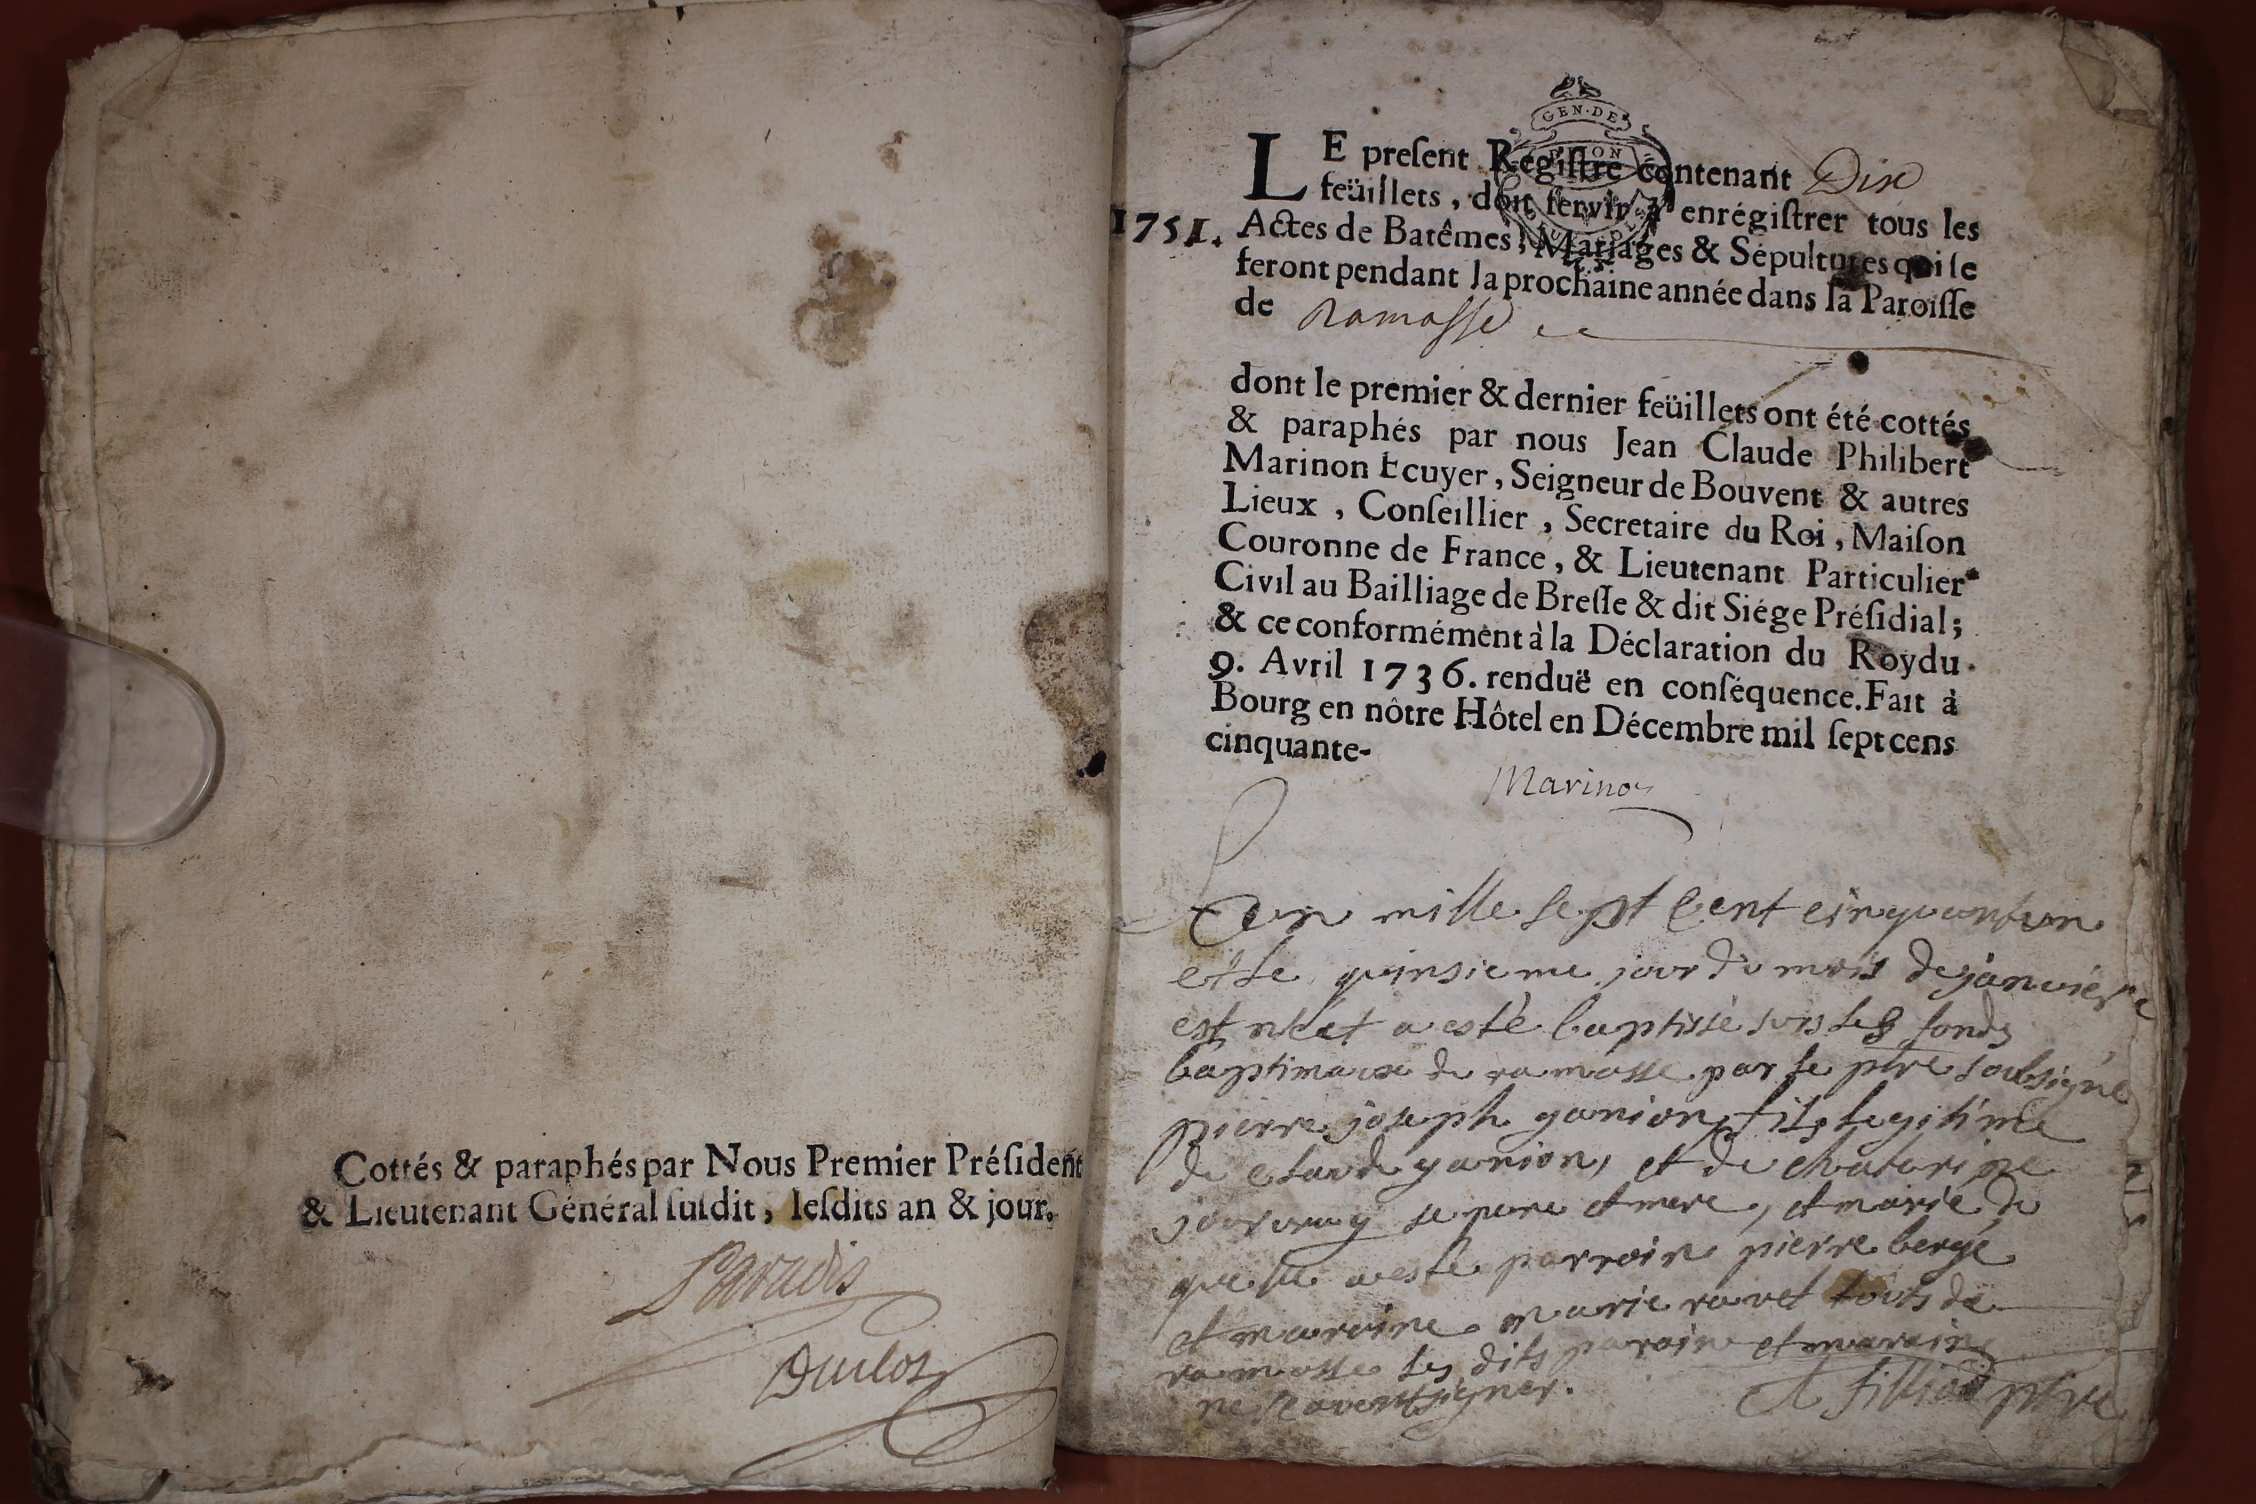 Cottés & paraphés par Nous Premier Préſident
& Lieutenant Général ſuſdit, leſdits an & jour.
Paradis
Duclos
GEN. DE
DIJON
LE preſent Regiſtre contenant Dix
feüillets, doit ſervir à enrégiſtrer tous les
1751. Actes de Batêmes, Mariages & Sépultures qui ſe
feront pendant la prochaine année dans la Paroiſſe
de Ramasse
dont le premier & dernier feüillets ont été cottés
& paraphés par nous Jean Claude Philibert
Marinon Ecuyer, Seigneur de Bouvent & autres
Lieux, Conſeillier, Secretaire du Roi, Maiſon
Couronne de France, & Lieutenant Particulier
Civil au Bailliage de Breſſe & dit Siége Préſidial;
& ce conformément à la Déclaration du Roy du
9. Avril 1736. renduë en conſéquence. Fait à
Bourg en nôtre Hôtel en Décembre mil ſept cens
cinquante-
Marinon
L'an mille sept cent cinquantun
et le quinsieme jour du mois de janvier
est né et a esté baptissé sus les fonds
baptimaux de ramasse par le ptre soubsigné
pierre joseph ganion fils legitime
de claude ganion, et de chatarine
se pere et mere, et marie de
a esté parroin pierre bergé
et maroine marie ravet touts de
ramasse les dits paroin et maroine
ne scavent signer.
ptre